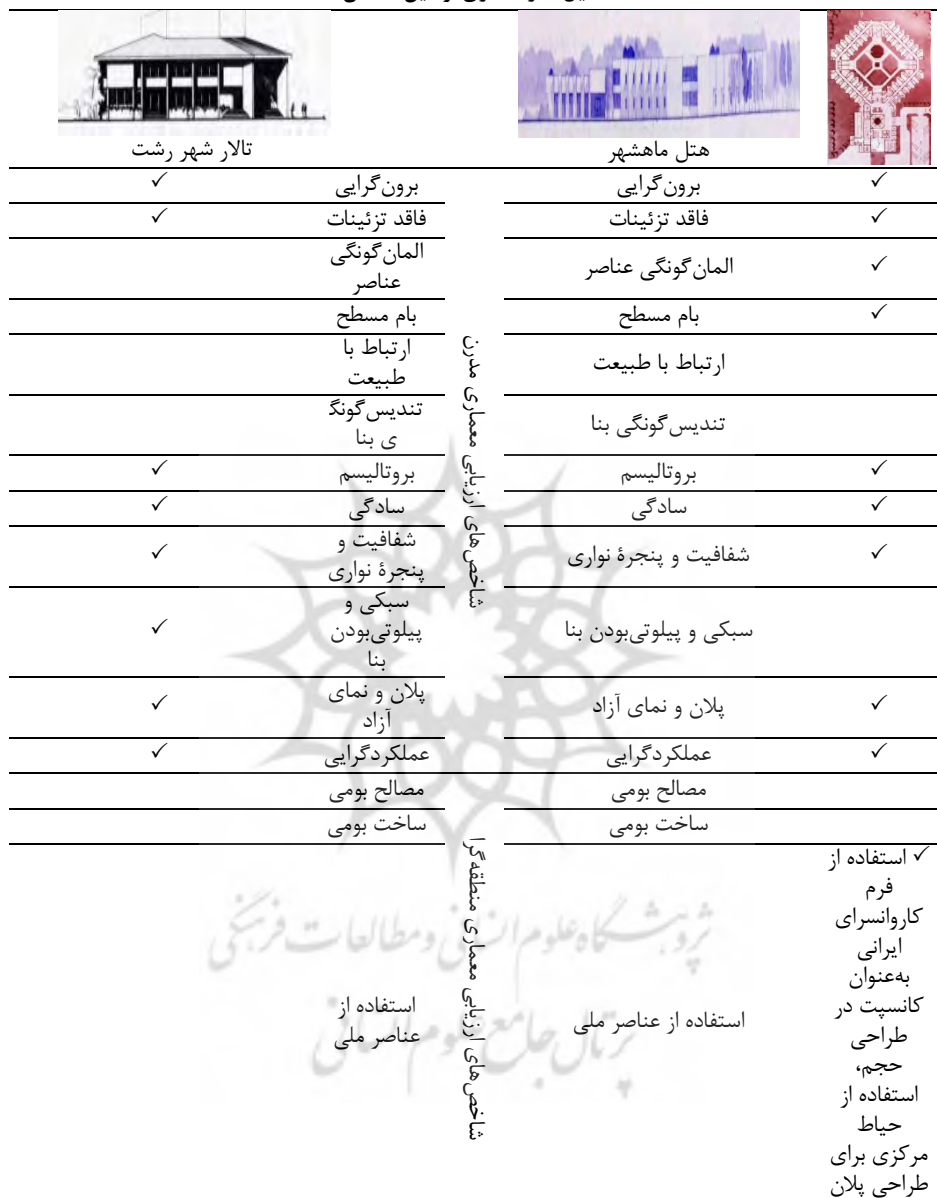 هتل ماهشهر
تالار شهر رشت
✓ برون‌گرایی برون‌گرایی ✓
✓ فاقد تزئینات فاقد تزئینات ✓
✓ المان‌گونگی عناصر المان‌گونگی
عناصر
✓ بام مسطح بام مسطح
ارتباط با طبیعت ارتباط با
طبیعت
تندیس‌گونگی بنا تندیس‌گونگ
ی بنا
✓ بروتالیسم بروتالیسم ✓
✓ سادگی سادگی ✓
✓ شفافیت و پنجرهٔ نواری شفافیت و
پنجرهٔ نواری ✓
سبکی و پیلوتی‌بودن بنا سبکی و
پیلوتی‌بودن ✓
بنا
✓ پلان و نمای آزاد پلان و نمای
آزاد ✓
✓ عملکردگرایی عملکردگرایی ✓
مصالح بومی مصالح بومی
ساخت بومی ساخت بومی
شاخص‌های ارزیابی معماری مدرن
✓ استفاده از
فرم
کاروانسرای
ایرانی
به‌عنوان
کانسپت در
طراحی
حجم،
استفاده از
حیاط
مرکزی برای
طراحی پلان
استفاده از عناصر ملی
استفاده از
عناصر ملی
شاخص‌های ارزیابی معماری منطقه‌گرا
پژوهشگاه علوم انسانی و مطالعات فرهنگی
پرتال جامع علوم انسانی